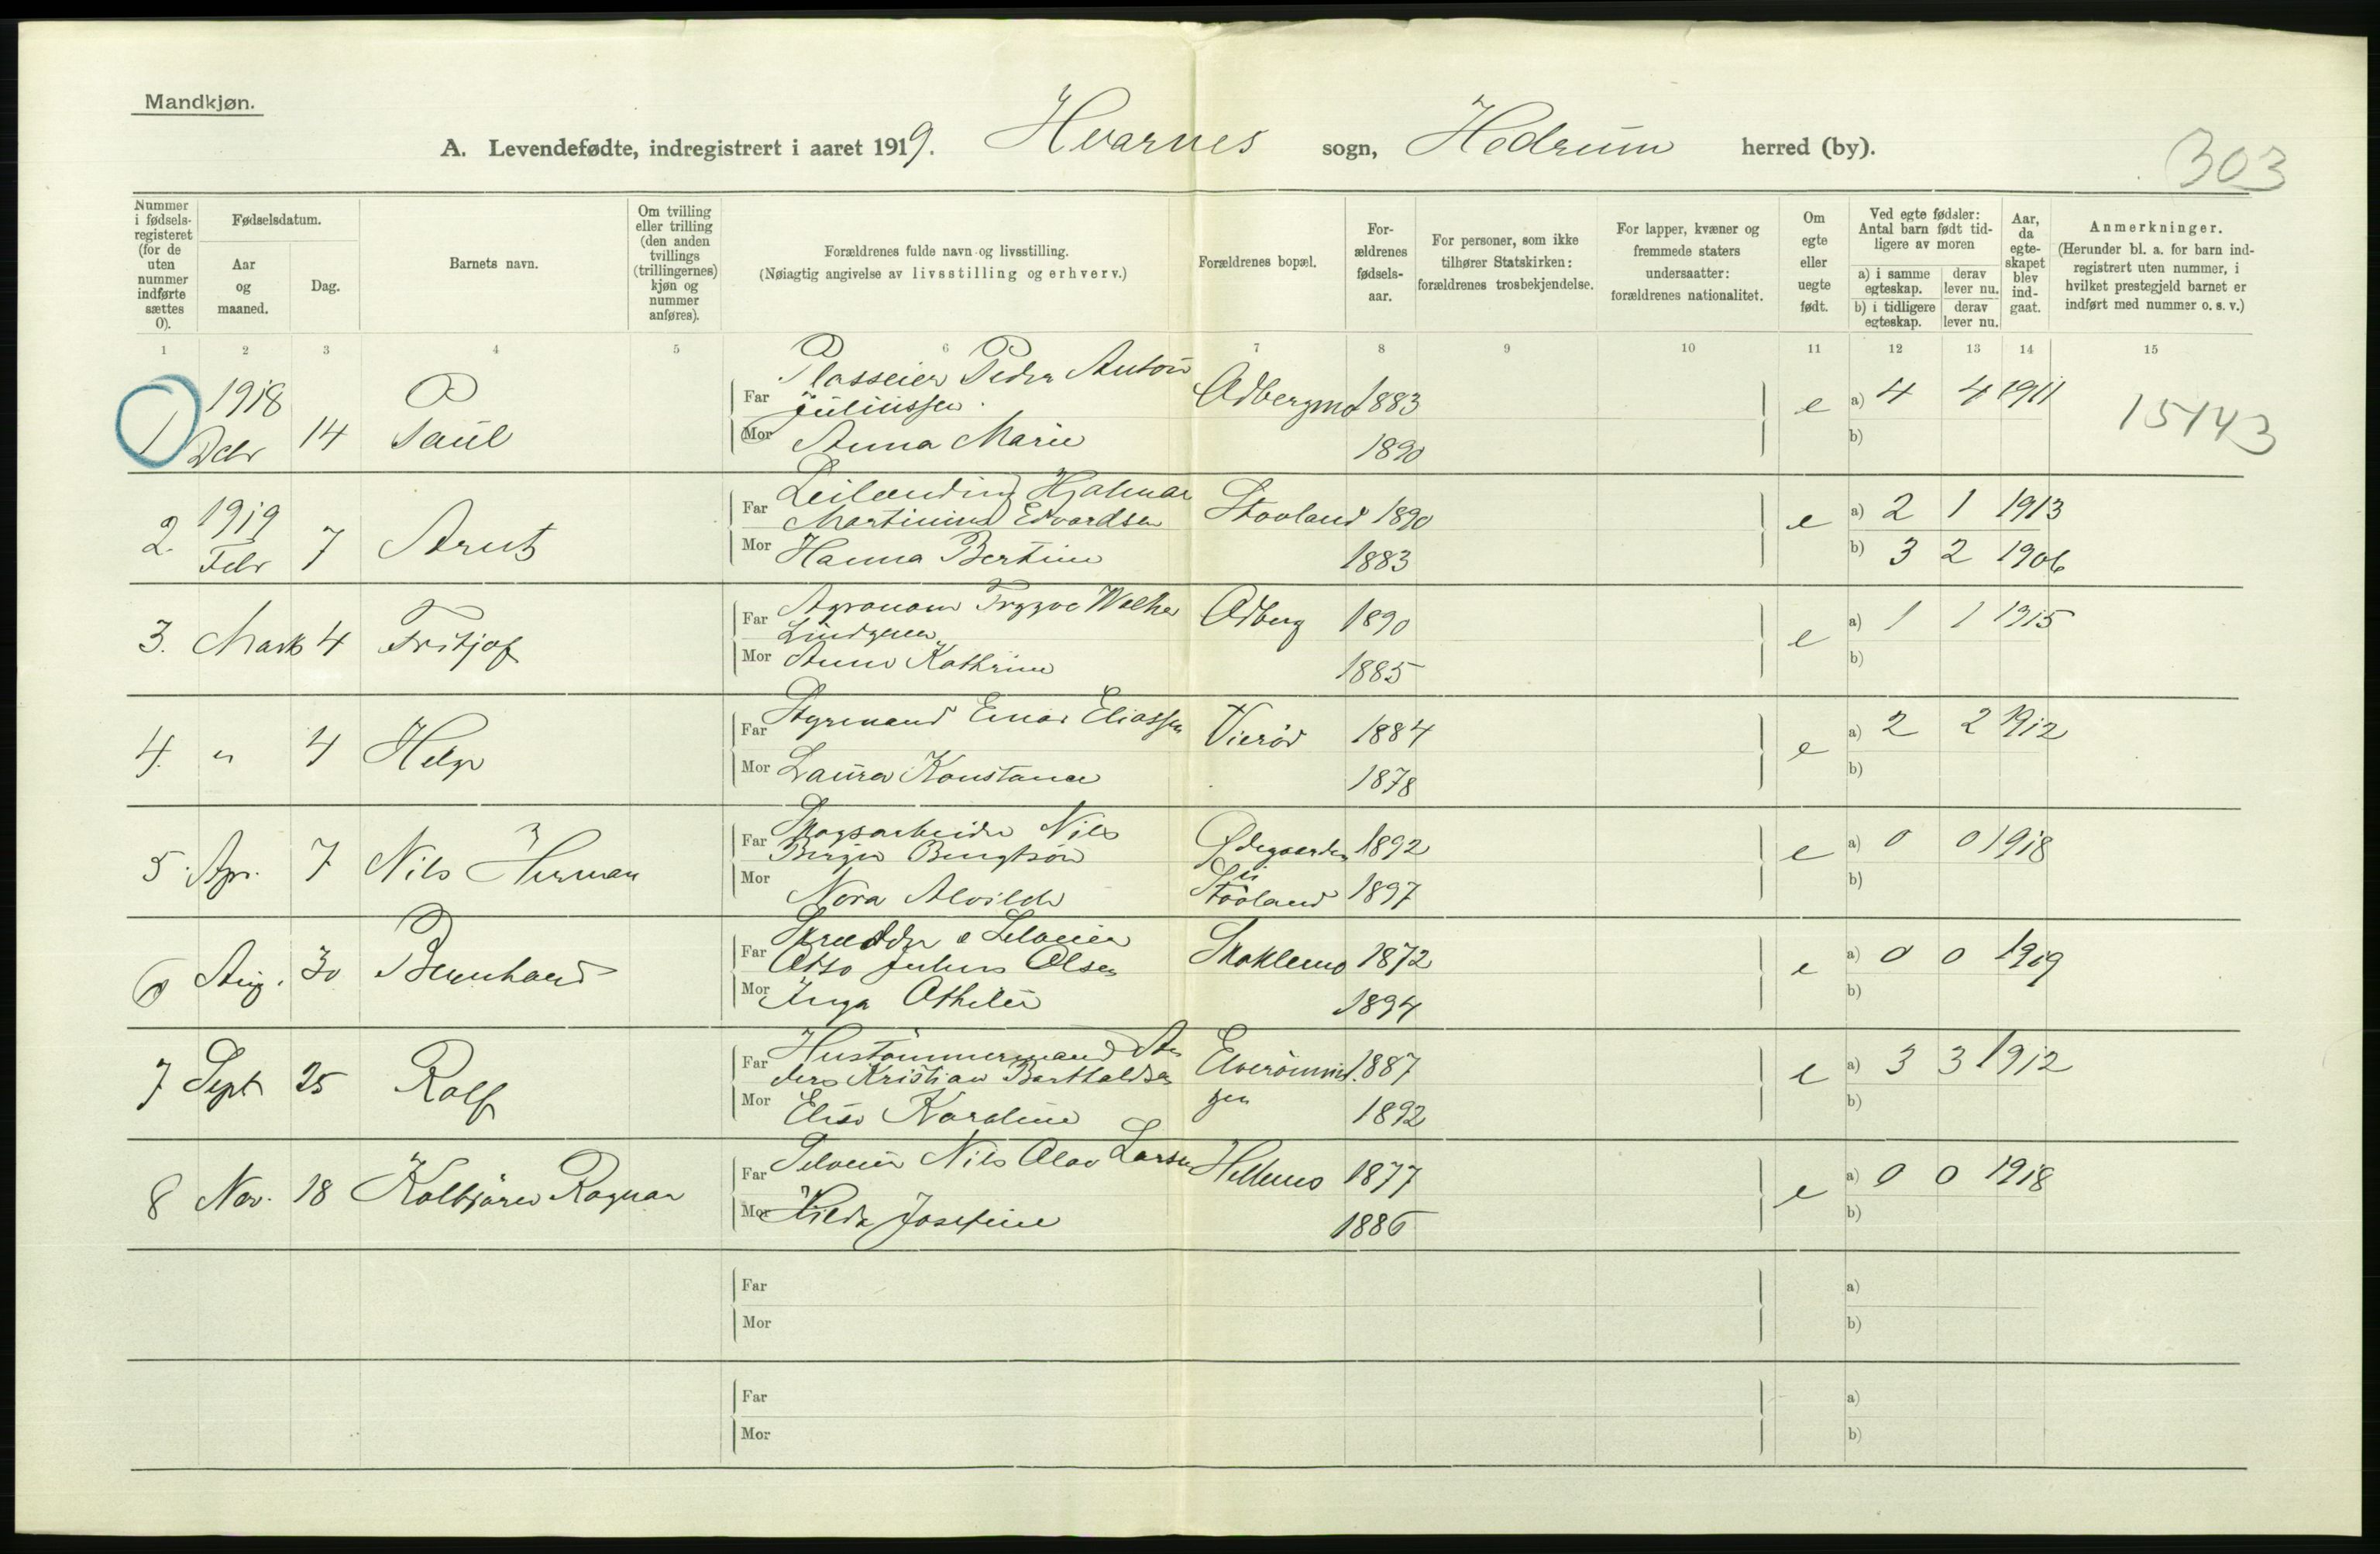 Mandkjøn.
A. Levendefødte, indregistrert i aaret 1919. Hvarnes sogn, Hedrum herred (by).
303
Nummer i fødsels-registeret (for de uten nummer indførte sættes 0).
Fødselsdatum.
Aar og maaned.
Dag.
Barnets navn.
Om tvilling eller trilling (den anden tvillings (trillingernes) kjøn og nummer anføres).
Forældrenes fulde navn og livsstilling.
(Nøiagtig angivelse av livsstilling og erhverv.)
Forældrenes bopæl.
For-ældrenes fødsels-aar.
For personer, som ikke tilhører Statskirken: forældrenes trosbekjendelse.
For lapper, kvæner og fremmede staters undersaatter: forældrenes nationalitet.
Om egte eller uegte født.
Ved egte fødsler: Antal barn født tid-ligere av moren
a) i samme egteskap.
derav lever nu.
b) i tidligere egteskap.
derav lever nu.
Aar, da egte-skapet blev ind-gaat.
Anmerkninger.
(Herunder bl. a. for barn ind-registrert uten nummer, i hvilket prestegjeld barnet er indført med nummer o. s. v.)
1 2 3 4 5 6 7 8 9 10 11 12 13 14 15
1 1918 Debr 14 Paul
Far Plasseier Peder Anton Juliussen. 1883 e a) 4 4 1911 15143
Mor Anna Marie 1890 b)
2. 1919 Febr 7 Arnt
Far Hjalmar Martinius Edvardsen Stovland 1890 e a) 2 1 1913
Mor Hanna Bertine 1883 b) 3 2 1906
3. Marts 4 Fritjof
Far Agronom Trygve Lindgren Odberg 1890 e a) 1 1 1915
Mor Anna Kathrine 1885 b)
4. " 4 Helge
Far Styrmand Einar Eliassen Vierød 1884 e a) 2 2 1912
Mor Laura Konstance 1878 b)
5. Apr. 7 Nils Herman
Far Skogsarbeider Nils Birger Bengtson Ødegaarden 1892 e a) 0 0 1918
Mor Nora Alvilde Stovland 1897 b)
6 Aug. 30 Bernhard
Far Skrædder o Selveier Otto Julius Olsen 1872 e a) 0 0 1919
Mor Inga Othelie 1894 b)
7 Sept 25 Rolf
Far Hustømmermand An
ders Kristian Barthaldsen 1887 e a) 3 3 1912
Mor Elise Karoline 1892 b)
8 Nov. 18 Kolbjørn Ragnar
Far Selveier Nils Olav Larsen 1877 e a) 0 0 1918
Mor Hilda Josefine 1886 b)
Far a)
Mor b)
Far a)
Mor b)